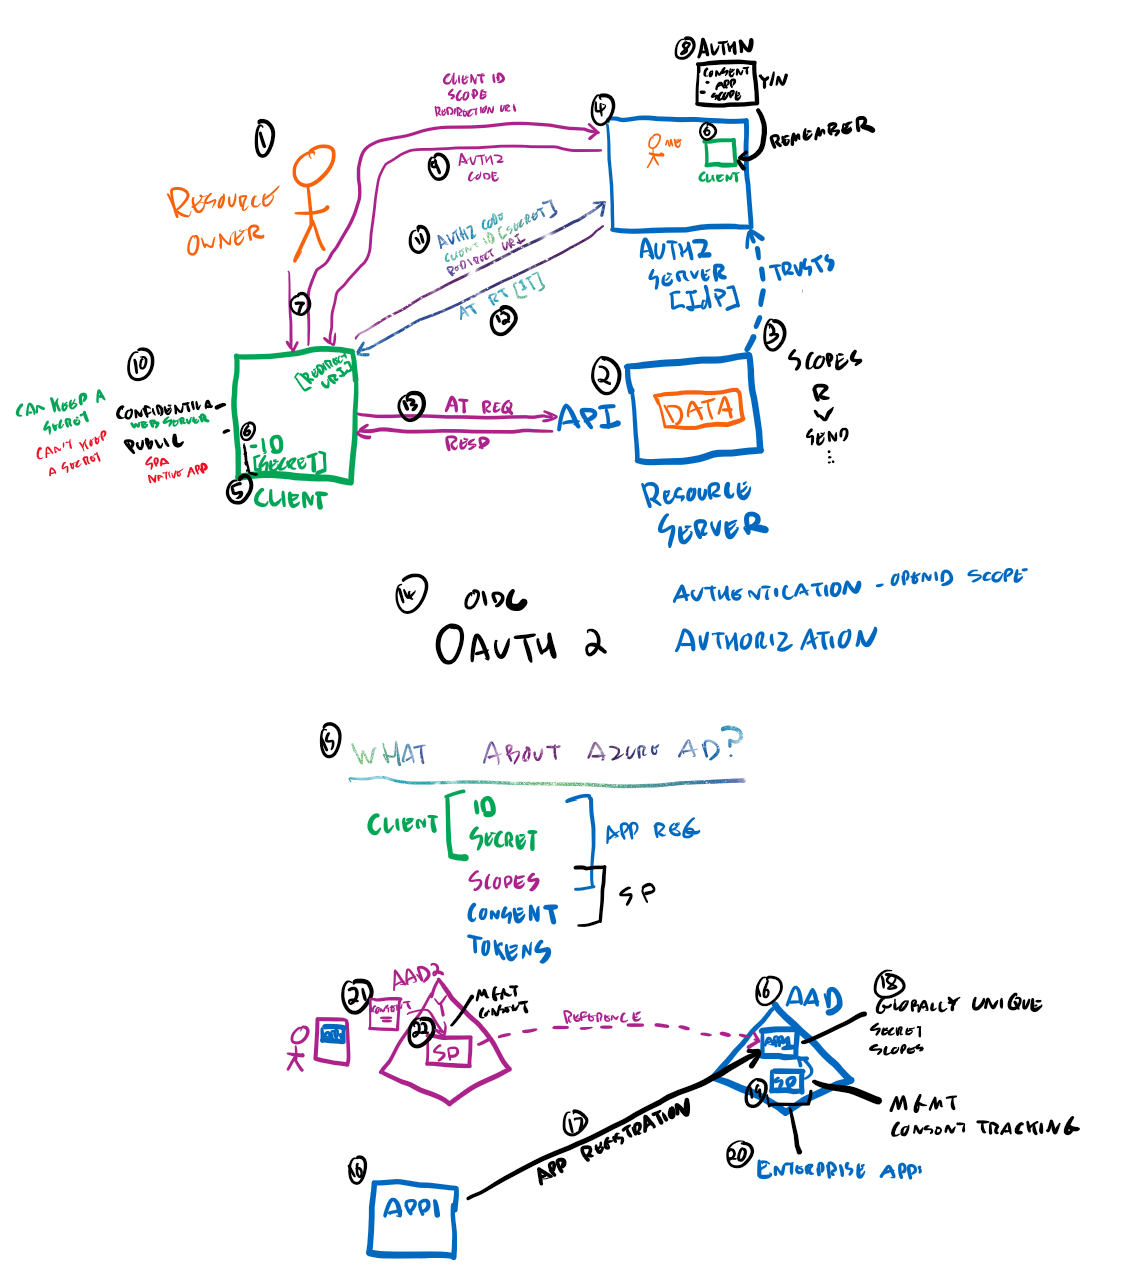 8 AUTHN
CONSENT
- APP
- SCOPE
Y/N
REMEMBER
CLIENT ID
SCOPE
REDIRECTION URI
4
1
RESOURCE
OWNER
9 AUTHZ
CODE
ME
6
CLIENT
11
AUTHZ CODE
CLIENT ID [SECRET]
REDIRECT URI
AT RT [IT]
12
AUTHZ
SERVER
[IdP]
TRUSTS
7
3
SCOPES
R
SEND
...
10
CAN KEEP A
SECRET
CAN'T KEEP
A SECRET
WEB SERVER
PUBLIC
SPA
NATIVE APP
[REDIRECT
URI]
6
- ID
[SECRET]
5
CLIENT
13 AT REQ
RESP
2
API
DATA
RESOURCE
SERVER
14 OIDC
OAUTH 2
AUTHENTICATION - OPENID SCOPE
AUTHORIZATION
15 WHAT ABOUT AZURE AD?
CLIENT
ID
SECRET
APP REG
SCOPES
CONSENT
SP
TOKENS
AAD2
21
CONSENT
22
SP
MGMT
CONSENT
REFERENCE
16 AAD
APP1
SP
18
GLOBALLY UNIQUE
SECRET
SCOPES
19
MGMT
CONSONT TRACKING
20 ENTERPRISE APP
17
APP REGSTRATION
16
APP1